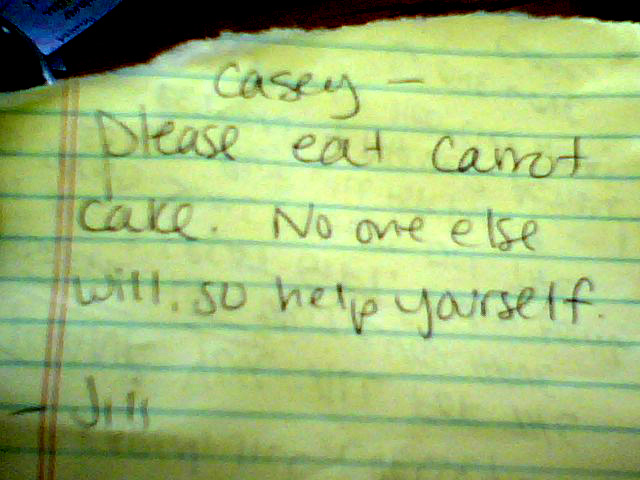 Casey -
Please eat carrot
cake. No one else
will, so help yourself.
- Jill